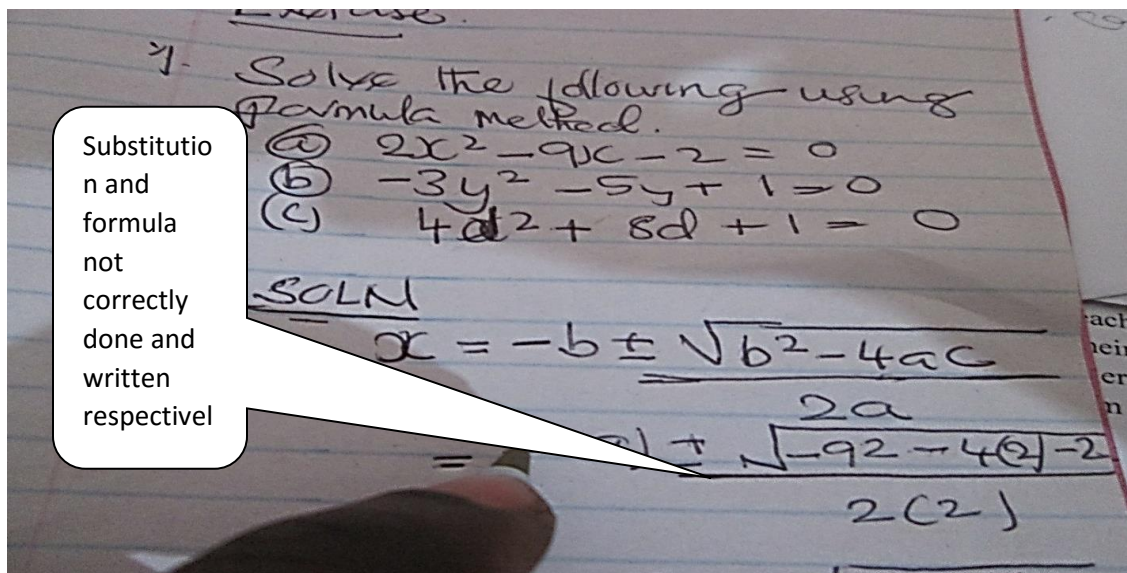 Exercise.
Solve the following using
formula method.
(a) 2x² - 9x - 2 = 0
(b) -3y² - 5y + 1 = 0
(c) 4d² + 8d + 1 = 0
SOLN
x = -b ± √b² - 4ac
2a
= ± √-92 - 4(2)-2
2(2)
Substitutio
n and
formula
not
correctly
done and
written
respectivel
each
heir
er
n